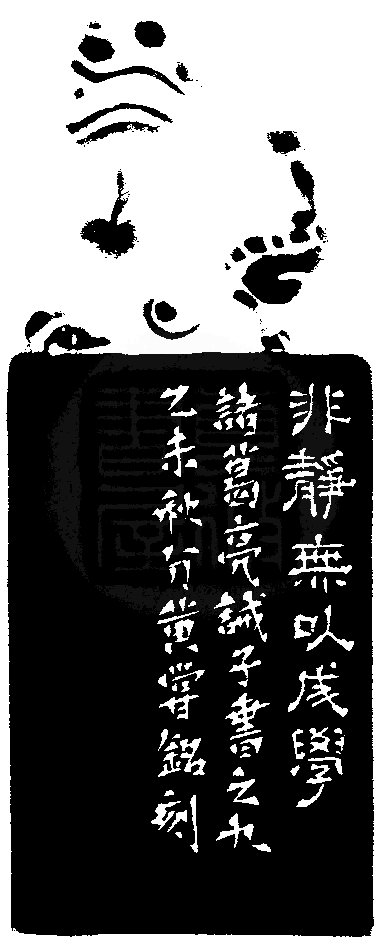 非靜無以成學
諸葛亮誡子書之九
乙未秋分黃嘗銘刻